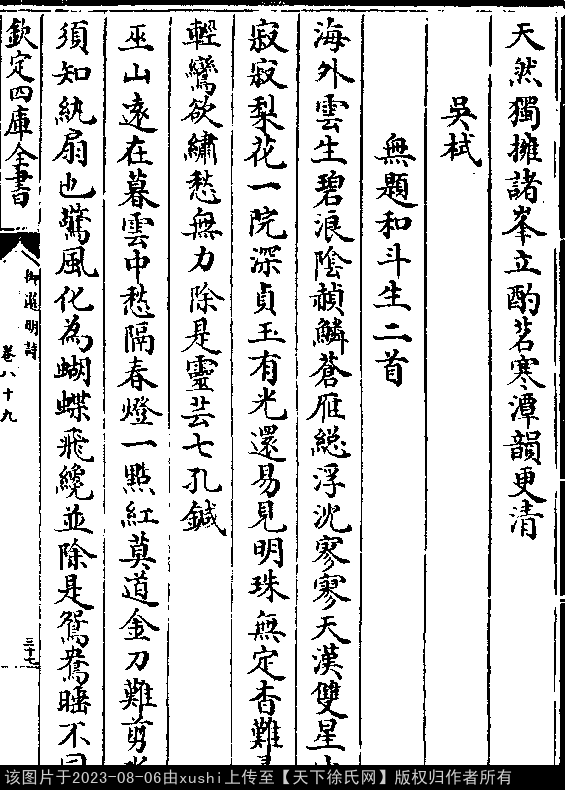 天然獨擁諸峯立酌茗寒潭韻更清
吳栻
無題和斗生二首
海外雲生碧浪陰赬鱗蒼雁総浮沈寥寥天漢雙星
寂寂梨花一院深貞玉有光還易見明珠無定杳難
輕鸞欲繡愁無力除是靈芸七孔鍼
巫山遠在暮雲中愁隔春燈一點紅莫道金刀難剪
須知紈扇也驚風化為蝴蝶飛纔並除是鴛鴦睡不同
欽定四庫全書
御選明詩
卷八十九
三十七
该图片于2023-08-06由xushi上传至【天下徐氏网】版权归作者所有